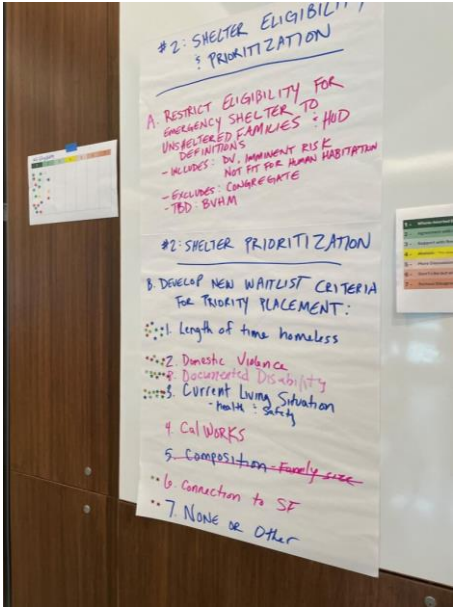 #2: SHELTER ELIGIBILITY
& PRIORITIZATION
A. RESTRICT ELIGIBILITY FOR
EMERGENCY SHELTER TO
UNSHELTERED FAMILIES : HUD
DEFINITIONS
- INCLUDES: DV, IMMINENT RISK
NOT FIT FOR HUMAN HABITATION
- EXCLUDES: CONGREGATE
- TBD: BVHM
#2: SHELTER PRIORITIZATION
B. DEVELOP NEW WAITLIST CRITERIA
FOR PRIORITY PLACEMENT:
1. Length of time homeless
2. Domestic Violence
Documented Disability
3. Current Living Situation
- health & safety
4. CalWORKS
5. Composition - Family size
6. Connection to SF
7. NONE OR Other